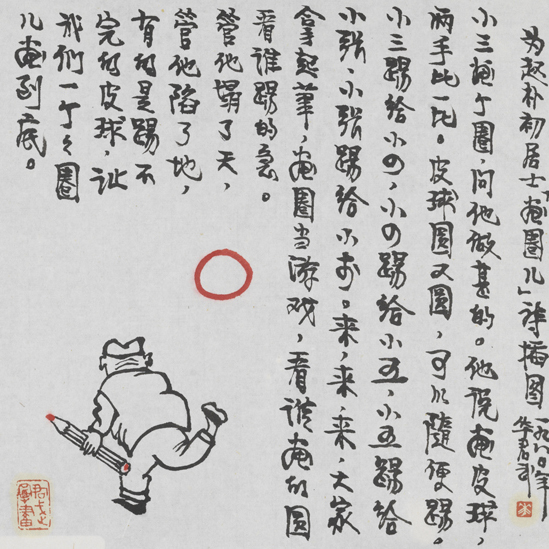 为赵朴初居士「画圈儿」诗插图 一九八〇年 华君武
小三画个圈,问他做甚的。他说画皮球,
两手比一比。皮球圆又圆,可以随便踢。
小三踢给小四,小四踢给小五,小五踢给
小张,小张踢给小李。来,来,来,大家
拿起笔,画圈当游戏,看谁画的圆
看谁踢的急。
管他塌了天,
管他陷了地,
有的是踢不
完的皮球,让
我们一个々圈
儿画到底。